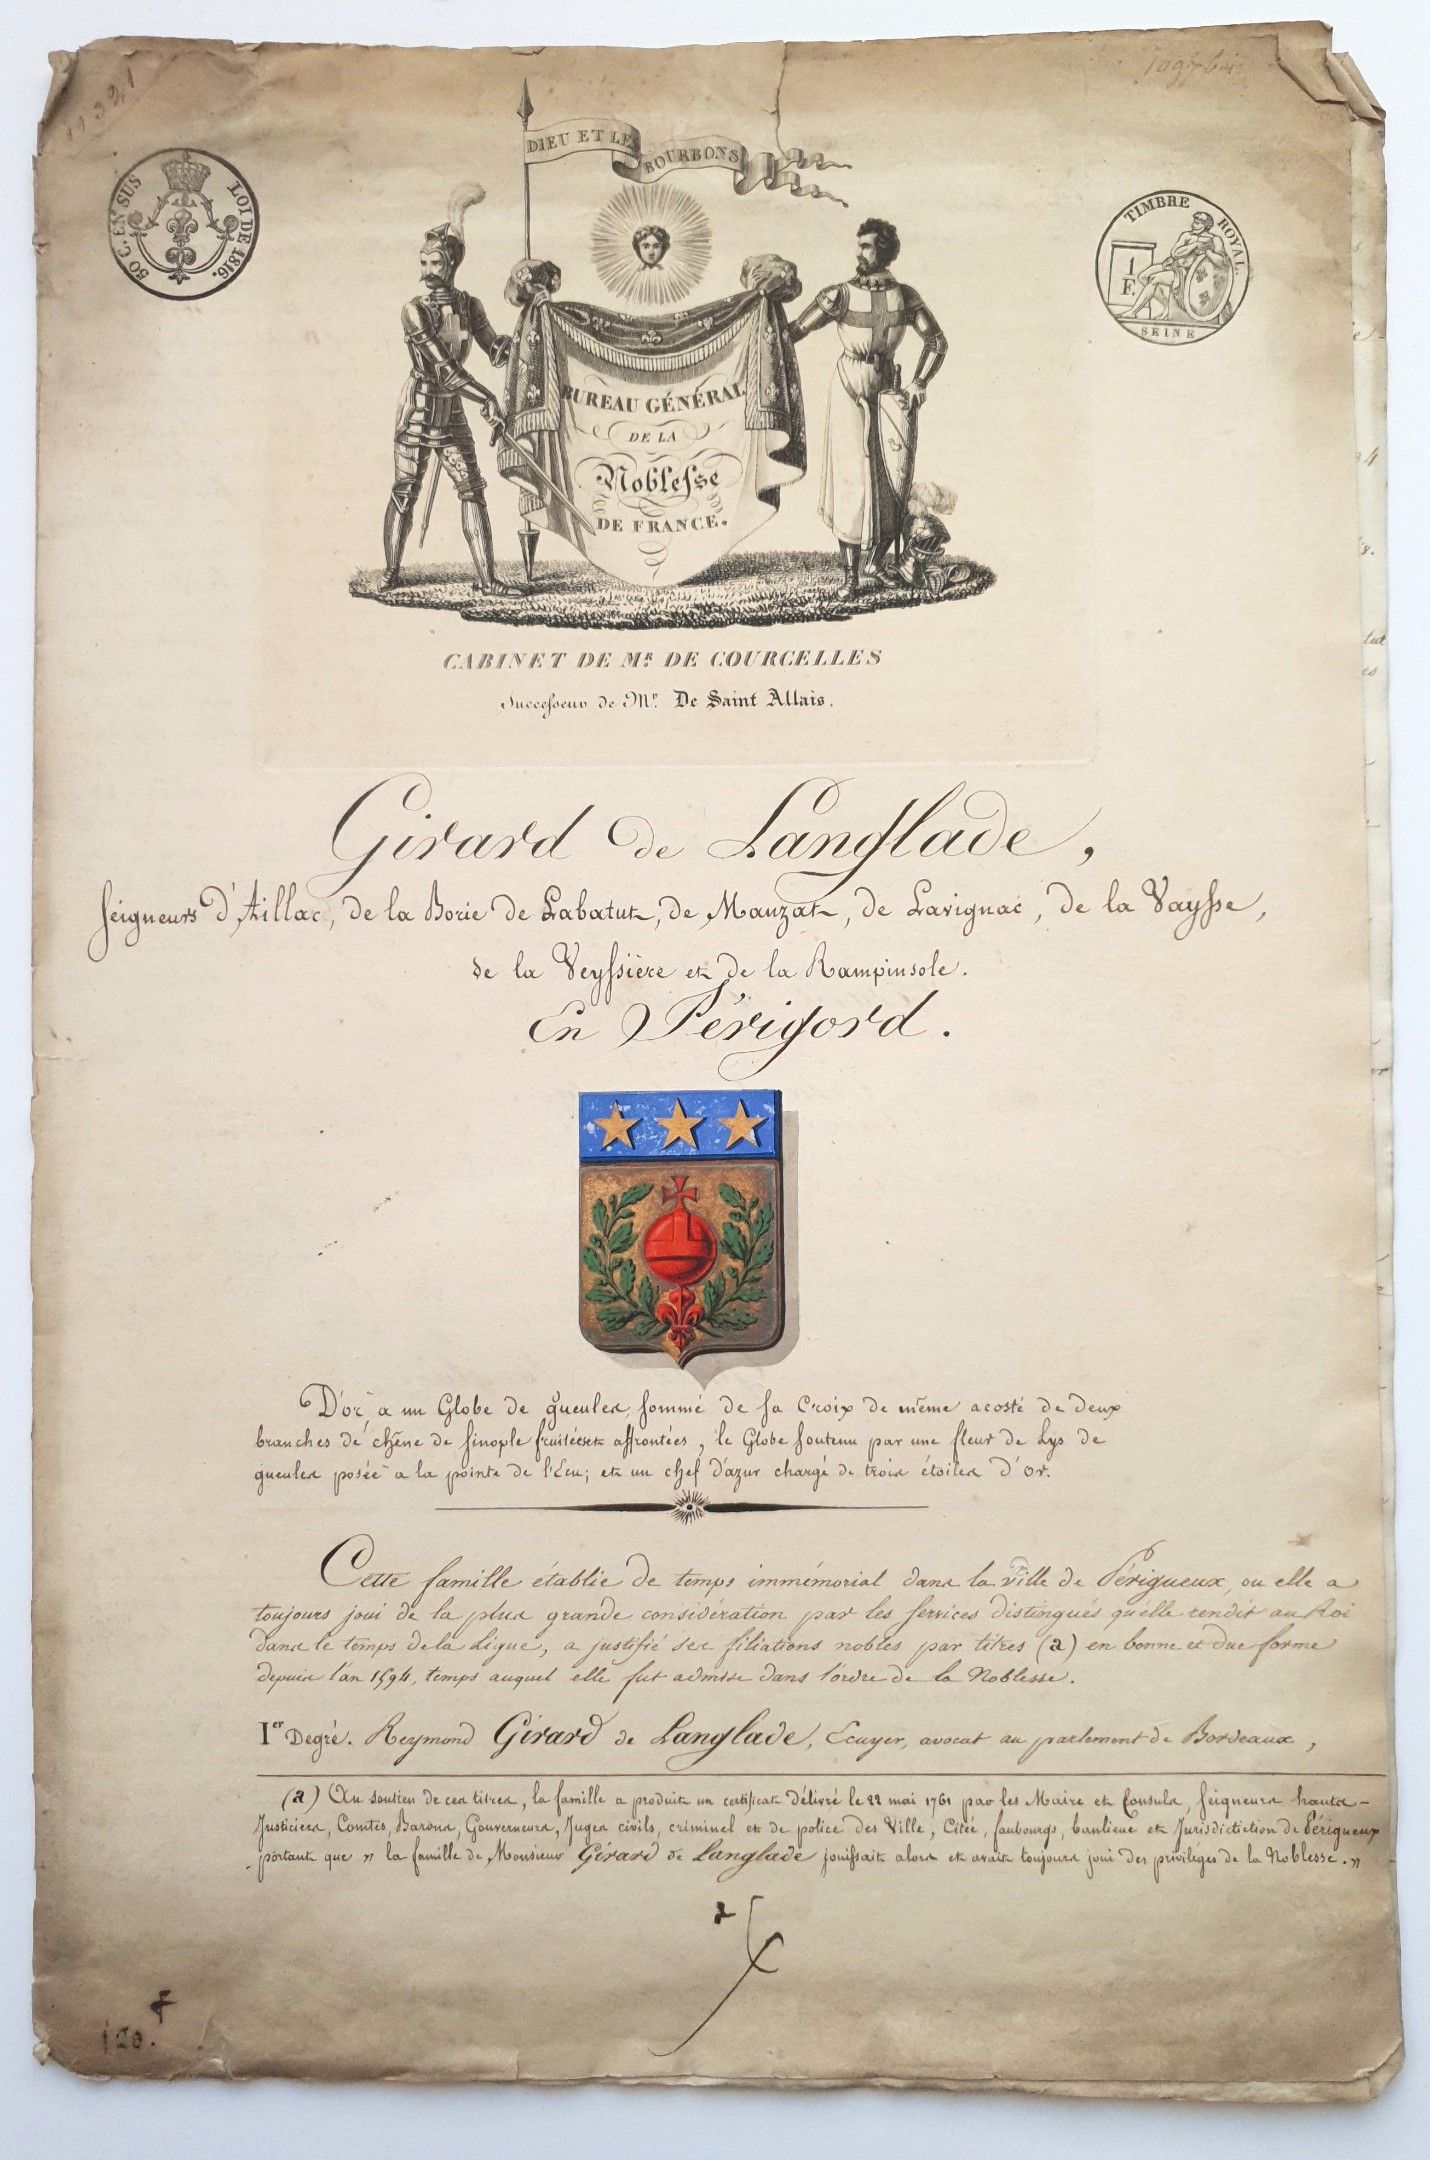 50 C. EN SUS LOI DE 1816.
DIEU ET LES BOURBONS
TIMBRE ROYAL.
1 F.
SEINE
BUREAU GÉNÉRAL
DE LA
Noblesse
DE FRANCE.
CABINET DE Mr. DE COURCELLES
Successeur de Mr. De Saint Allais.
Girard de Langlade,
Seigneurs d'Aillac, de la Borie de Labatut, de Manzat, de Lavignac, de la Vaysse,
de la Veyssière et de la Rampinsole.
En Périgord.
D'or à un Globe de gueules sommé de sa Croix de même acosté de deux
branches de chêne de sinople fruitées et affrontées, le Globe soutenu par une fleur de Lys de
gueules posée à la pointe de l'Ecu; et un chef d'azur chargé de trois étoiles d'or.
Cette famille établie de temps immémorial dans la ville de Périgueux, ou elle a
toujours joui de la plus grande considération par les services distingués qu'elle rendit au Roi
dans le temps de la Ligue, a justifié ses filiations nobles par titres (a) en bonne et due forme
depuis l'an 1594, temps auquel elle fut admise dans l'ordre de la Noblesse.
Ier Degré. Reymond Girard de Langlade, Ecuyer, avocat au parlement de Bordeaux,
(a) Au soutien de ces titres, la famille a produit un certificat délivré le 22 mai 1761 par les Maire et Consuls, Seigneurs hauts-
Justiciers, Comtes, Barons, Gouverneurs, Juges civils, criminel et de police des Ville, Citée, faubourgs, banlieue et Jurisdictiction de Périgueux
portant que » la famille de Monsieur Girard de Langlade jouissait alors et avait toujours joui des privilèges de la Noblesse. »
120.